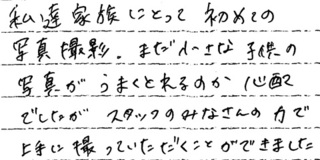 私達家族にとって 初めての
写真撮影。まだ小さな子供の
写真がうまくとれるのか心配
でしたが スタッフのみなさんの力で
上手に撮っていただくことができました